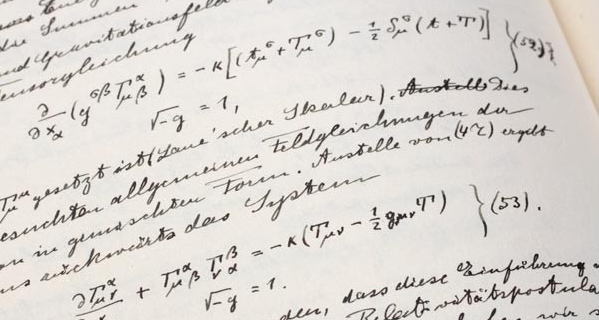 die Summen
und Gravitationsfeld
ensorgleichung
∂/∂x_α (g^{σβ} Γ^α_{μβ}) = −κ[(t_μ^σ + T_μ^σ) − ½ δ_μ^σ (t + T)] } (52)
√−g = 1,
gesetzt ist (Laue'scher Skalar). Anstelle Dies
esuchten allgemeinen Feldgleichungen der
on in gemischten Form. Anstelle von (47) ergibt
ns rückwärts das System
∂Γ^α_{μν} + Γ^α_{μβ} Γ^β_{να} = −κ(T_{μν} − ½ g_{μν} T) } (53).
√−g = 1.
den, dass diese Einführung
Relativitätspostula